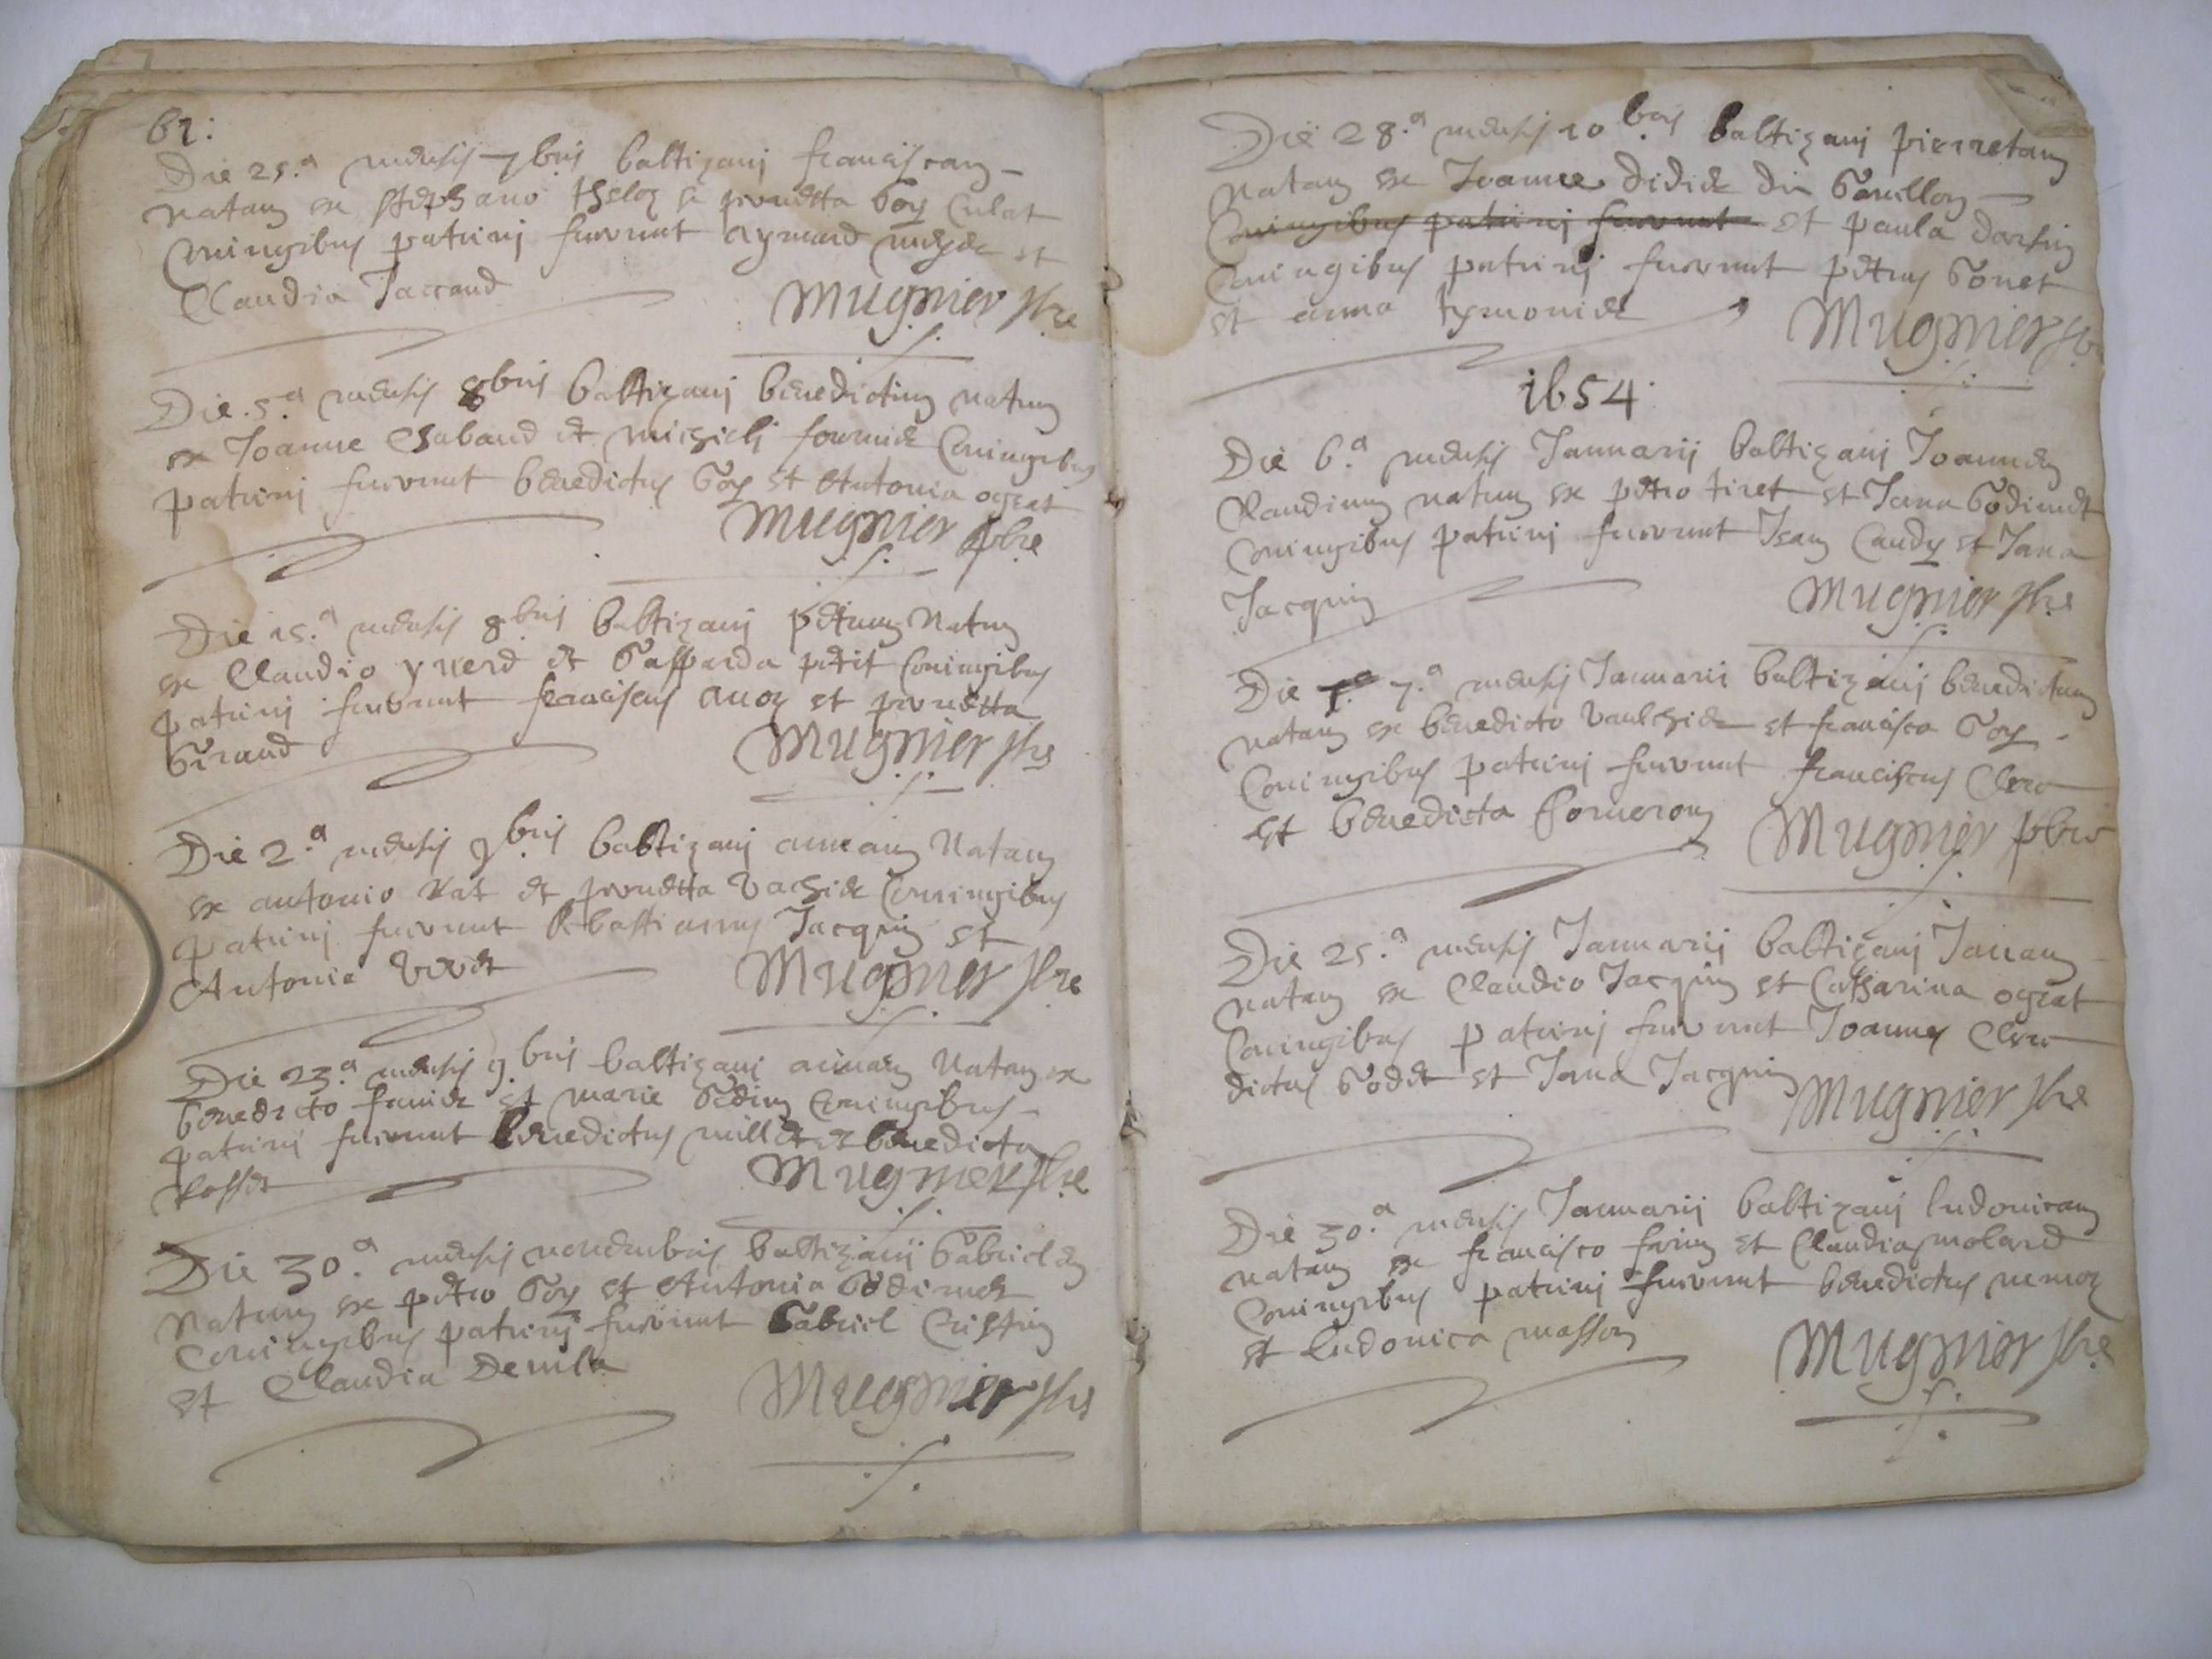 61:
Die 25.a mensis 7bris baptizavi franciscam
natam ex stephano theloz et pernetta Goy Culat
Coniugibus patrini fuerunt aymard et
Claudia Jaccaud
Mugnier pbre
Die 5.a mensis 8bris baptizavi benedictum natum
ex Joanne Chabaud et michieli fournier Coniugibus
patrini fuerunt benedictus Goy et Antonia ogeat
Mugnier pbre
Die 15.a mensis 8bris baptizavi petrum Natum
ex Claudio yverd et Gasparda petit Coniugibus
patrini fuerunt franciscus et pernetta
Giraud
Mugnier pbre
Die 2.a mensis 9bris baptizavi annam Natam
ex antonio Rat et pernetta Vachier Coniugibus
patrini fuerunt sebastianus Jacquin et
Antonia
Mugnier pbre
Die 23.a mensis 9bris baptizavi annam Natam ex
benedicto et marie Godin Coniugibus
patrini fuerunt benedictus millet et benedicta
Rosset
Mugnier pbre
Die 30.a mensis novembris baptizavi Gabrielem
Natum ex petro Goy et Antonia Godinet
Coniugibus patrini fuerunt Gabriel Cristin
et Claudia Devila
Mugnier pbre
Die 28.a mensis 10bris baptizavi pierretam
Natam ex Joanne didier dit Gouillon
Coniugibus patrini fuerunt et paula darsin
Coniugibus patrini fuerunt petrus Gonet
et anna tymonier
Mugnier pbre
1654:
Die 6.a mensis Januarij baptizavi Joannem
Claudium natum ex petro tiret et Jana Godinet
Coniugibus patrini fuerunt Jean Caudy et Jana
Jacquin
Mugnier pbre
Die 7.a mensis Januarii baptizavi benedictam
natam ex benedicto Vaulchier et francisca Goy
Coniugibus patrini fuerunt franciscus Clerc
et benedicta Corneron
Mugnier pbre
Die 25.a mensis Januarij baptizavi Janam
natam ex Claudio Jacquin et Catharina ogeat
Coniugibus patrini fuerunt Joannes Clerc
dictus Godet et Jana Jacquin
Mugnier pbre
Die 30.a mensis Januarij baptizavi ludovicam
natam ex francisco et Claudia molard
Coniugibus patrini fuerunt benedictus nemoz
et ludovica masson
Mugnier pbre